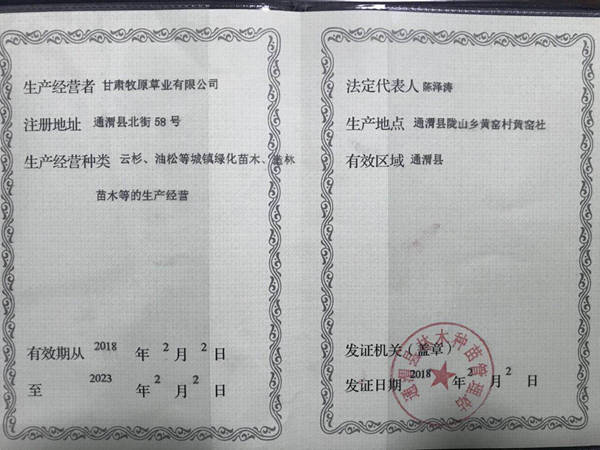 生产经营者 甘肃牧原草业有限公司
注册地址 通渭县北街58号
生产经营种类 云杉、油松等城镇绿化苗木、造林
苗木等的生产经营
有效期从 2018 年 2 月 2 日
至 2023 年 2 月 2 日
法定代表人 陈泽涛
生产地点 通渭县陇山乡黄窑村黄窑社
有效区域 通渭县
发证机关(盖章)
通渭县林木种苗管理站
发证日期 2018 年 2 月 2 日